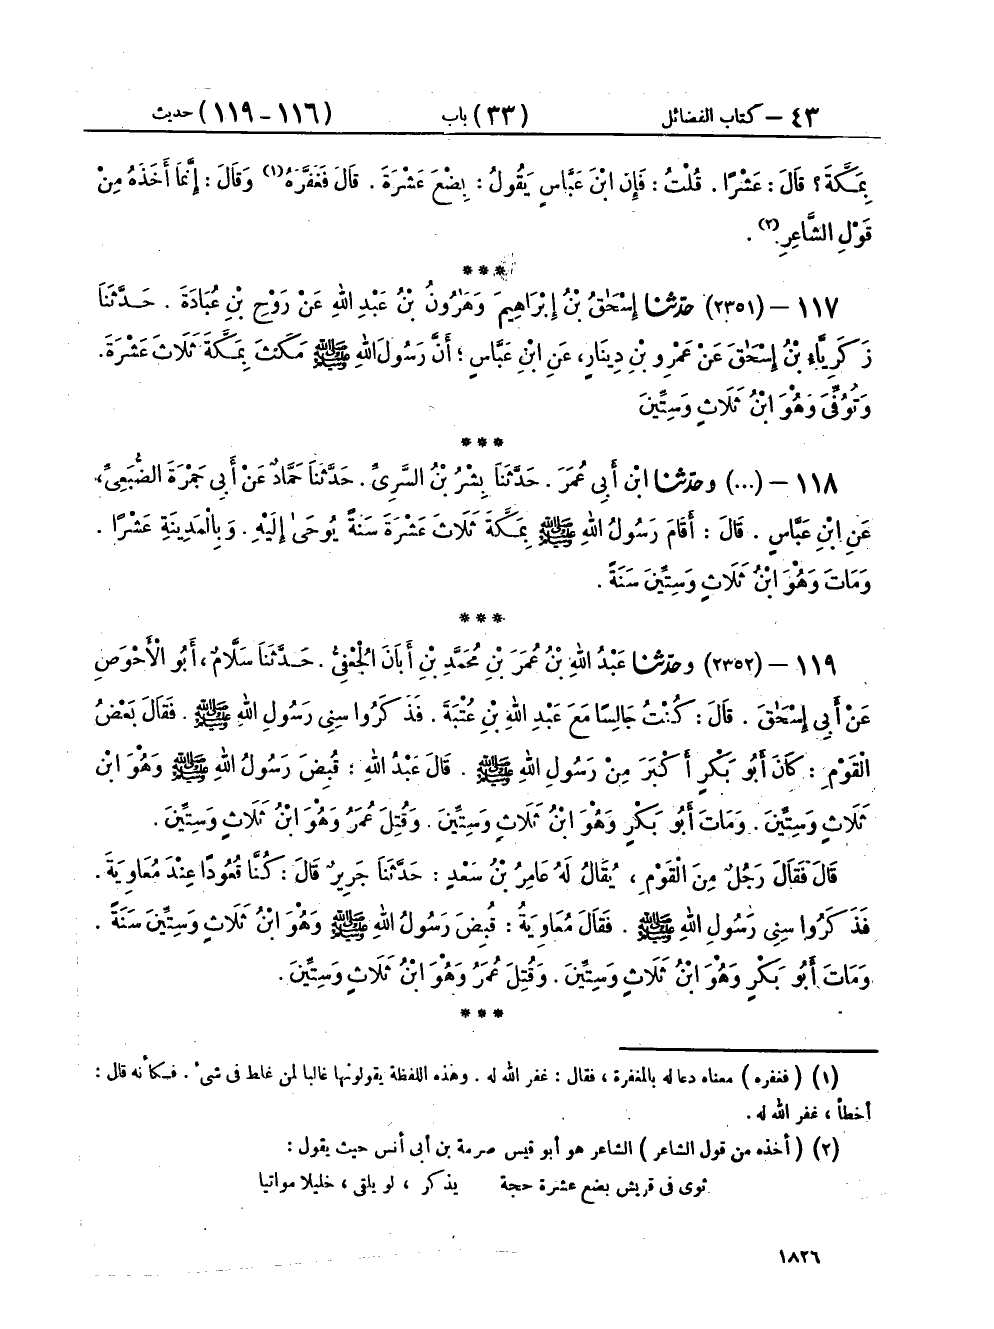 ٤٣ – كتاب الفضائل (٣٣) باب (١١٦ – ١١٩) حديث
بِمَكَّةَ؟ قَالَ: عَشْرًا. قُلْتُ: فَإِن ابْنَ عَبَّاسٍ يَقُولُ: بِضْعَ عَشْرَةَ. قَالَ فَغَفَّرَهُ(١) وَقَالَ: إِنَّمَا أَخَذَهُ مِنْ
قَوْلِ الشَّاعِرِ(٢).
***
١١٧ – (٢٣٥١) حَدَّثَنَا إِسْحَٰقُ بْنُ إِبْرَاهِيمَ وَهَٰرُونُ بْنُ عَبْدِ اللهِ عَنْ رَوْحِ بْنِ عُبَادَةَ. حَدَّثَنَا
زَكَرِيَّاءِ بْنُ إِسْحَٰقَ عَنْ عَمْرِو بْنِ دِينَارٍ، عَنِ ابْنِ عَبَّاسٍ؛ أَنَّ رَسُولَ اللهِ ﷺ مَكَثَ بِمَكَّةَ ثَلَاثَ عَشْرَةَ.
وَتُوُفِّىَ وَهُوَ ابْنُ ثَلَاثٍ وَسِتِّينَ
***
١١٨ – (...) وحَدَّثَنَا ابْن أَبِى عُمَرَ. حَدَّثَنَا بِشْرُ بْنُ السَّرِىِّ. حَدَّثَنَا حَمَّادٌ عَنْ أَبِى جَمْرَةَ الضُّبَعِىِّ،
عَنِ ابْنِ عَبَّاسٍ. قَالَ: أَقَامَ رَسُولُ اللهِ ﷺ بِمَكَّةَ ثَلَاثَ عَشْرَةَ سَنَةً يُوحَىٰ إِلَيْهِ. وَبِالْمَدِينَةِ عَشْرًا.
وَمَاتَ وَهُوَ ابْنُ ثَلَاثٍ وَسِتِّينَ سَنَةً.
***
١١٩ – (٢٣٥٢) وحَدَّثَنَا عَبْدُ اللهِ بْنُ عُمَرَ بْنِ مُحَمَّدِ بْنِ أَبَانَ الْجُعْفِىُّ. حَدَّثَنَا سَلَّامٌ، أَبُو الْأَحْوَصِ
عَنْ أَبِى إِسْحَٰقَ. قَالَ: كُنْتُ جَالِسًا مَعَ عَبْدِ اللهِ بْنِ عُتْبَةَ. فَذَكَرُوا سِنِى رَسُولِ اللهِ ﷺ. فَقَالَ بَعْضُ
الْقَوْمِ: كَانَ أَبُو بَكْرٍ أَكْبَرَ مِنْ رَسُولِ اللهِ ﷺ. قَالَ عَبْدُ اللهِ: قُبِضَ رَسُولُ اللهِ ﷺ وَهُوَ ابْن
ثَلَاثٍ وَسِتِّينَ. وَمَاتَ أَبُو بَكْرٍ وَهُوَ ابْنُ ثَلَاثٍ وَسِتِّينَ. وَقُتِلَ عُمَرُ وَهُوَ ابْنُ ثَلَاثٍ وَسِتِّينَ.
قَالَ فَقَالَ رَجُلٌ مِنَ الْقَوْمِ، يُقَالُ لَهُ عَامِرُ بْنُ سَعْدٍ: حَدَّثَنَا جَرِيرٌ قَالَ: كُنَّا قُعُودًا عِنْدَ مُعَاوِيَةَ.
فَذَكَرُوا سِنِى رَسُولِ اللهِ ﷺ. فَقَالَ مُعَاوِيَةُ: قُبِضَ رَسُولُ اللهِ ﷺ وَهُوَ ابْنُ ثَلَاثٍ وَسِتِّينَ سَنَةً.
وَمَاتَ أَبُو بَكْرٍ وَهُوَ ابْنُ ثَلَاثٍ وَسِتِّينَ. وَقُتِلَ عُمَرُ وَهُوَ ابْنُ ثَلَاثٍ وَسِتِّينَ.
***
(١) (فغفره) معناه دعا له بالمغفرة، فقال: غفر الله له. وهذه اللفظة يقولونها غالبا لمن غلط فى شىء. فكأنه قال:
أخطأ، غفر الله له.
(٢) (أخذه من قول الشاعر) الشاعر هو أبو قيس صرمة بن أبى أنس حيث يقول:
ثوى فى قريش بضع عشرة حجة يذكر، لو يلقى، خليلا مواتيا
١٨٢٦